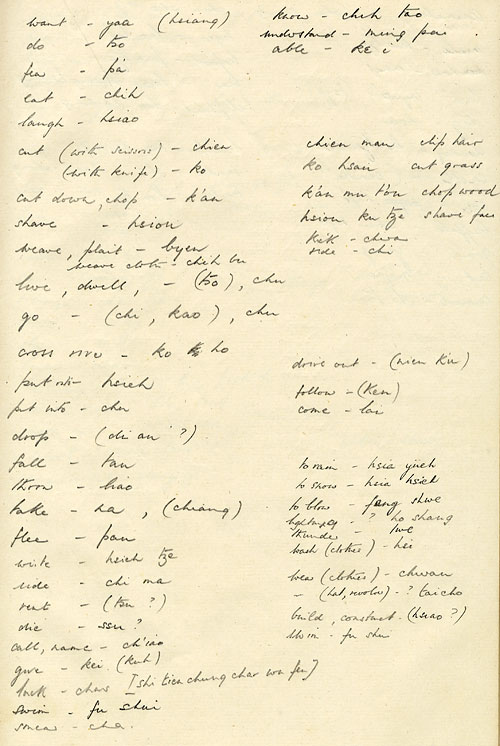 want - yaa (hsiang)
do - tso
fear - pá
eat - chih
laugh - hsiao
cut (with scissors) - chien
(with knife) - ko
cut down, chop - k'an
shave - hsion
weave, plait - byen
weave cloth - chih bu
live, dwell, - (tso), chu
go - (chi, kao), chu
cross river - ko ho
put into - hsieh
put into - chu
drop - (di au ?)
fall - tau
throw - liao
take - na, (chiang)
flee - pau
write - hsieh tze
ride - chi ma
rent - (tsu ?)
die - ssu ?
call, name - ch'iao
give - kei (kuh)
- chars [shi tien chung char wu fen]
swim - fu shui
smear - cha.
know - chih tao
understand - ming pai
able - ke i
chien mau clip hair
ko hsau cut grass
k'an mu t'ou chop wood
hsion ku tze shave face
kick - chwa
ride - chi
drive out - (nien ku)
follow - (ken)
come - lai
to rain - hsia yueh
to snow - hsia hsieh
to blow - feng shwe
lightning - ? ho shang
thunder - lwe
wash (clothes) - hei
wear (clothes) - chwan
- (hat, revolver) - ? tai cho
build, construct - (hsiao ?)
swim - fu shu